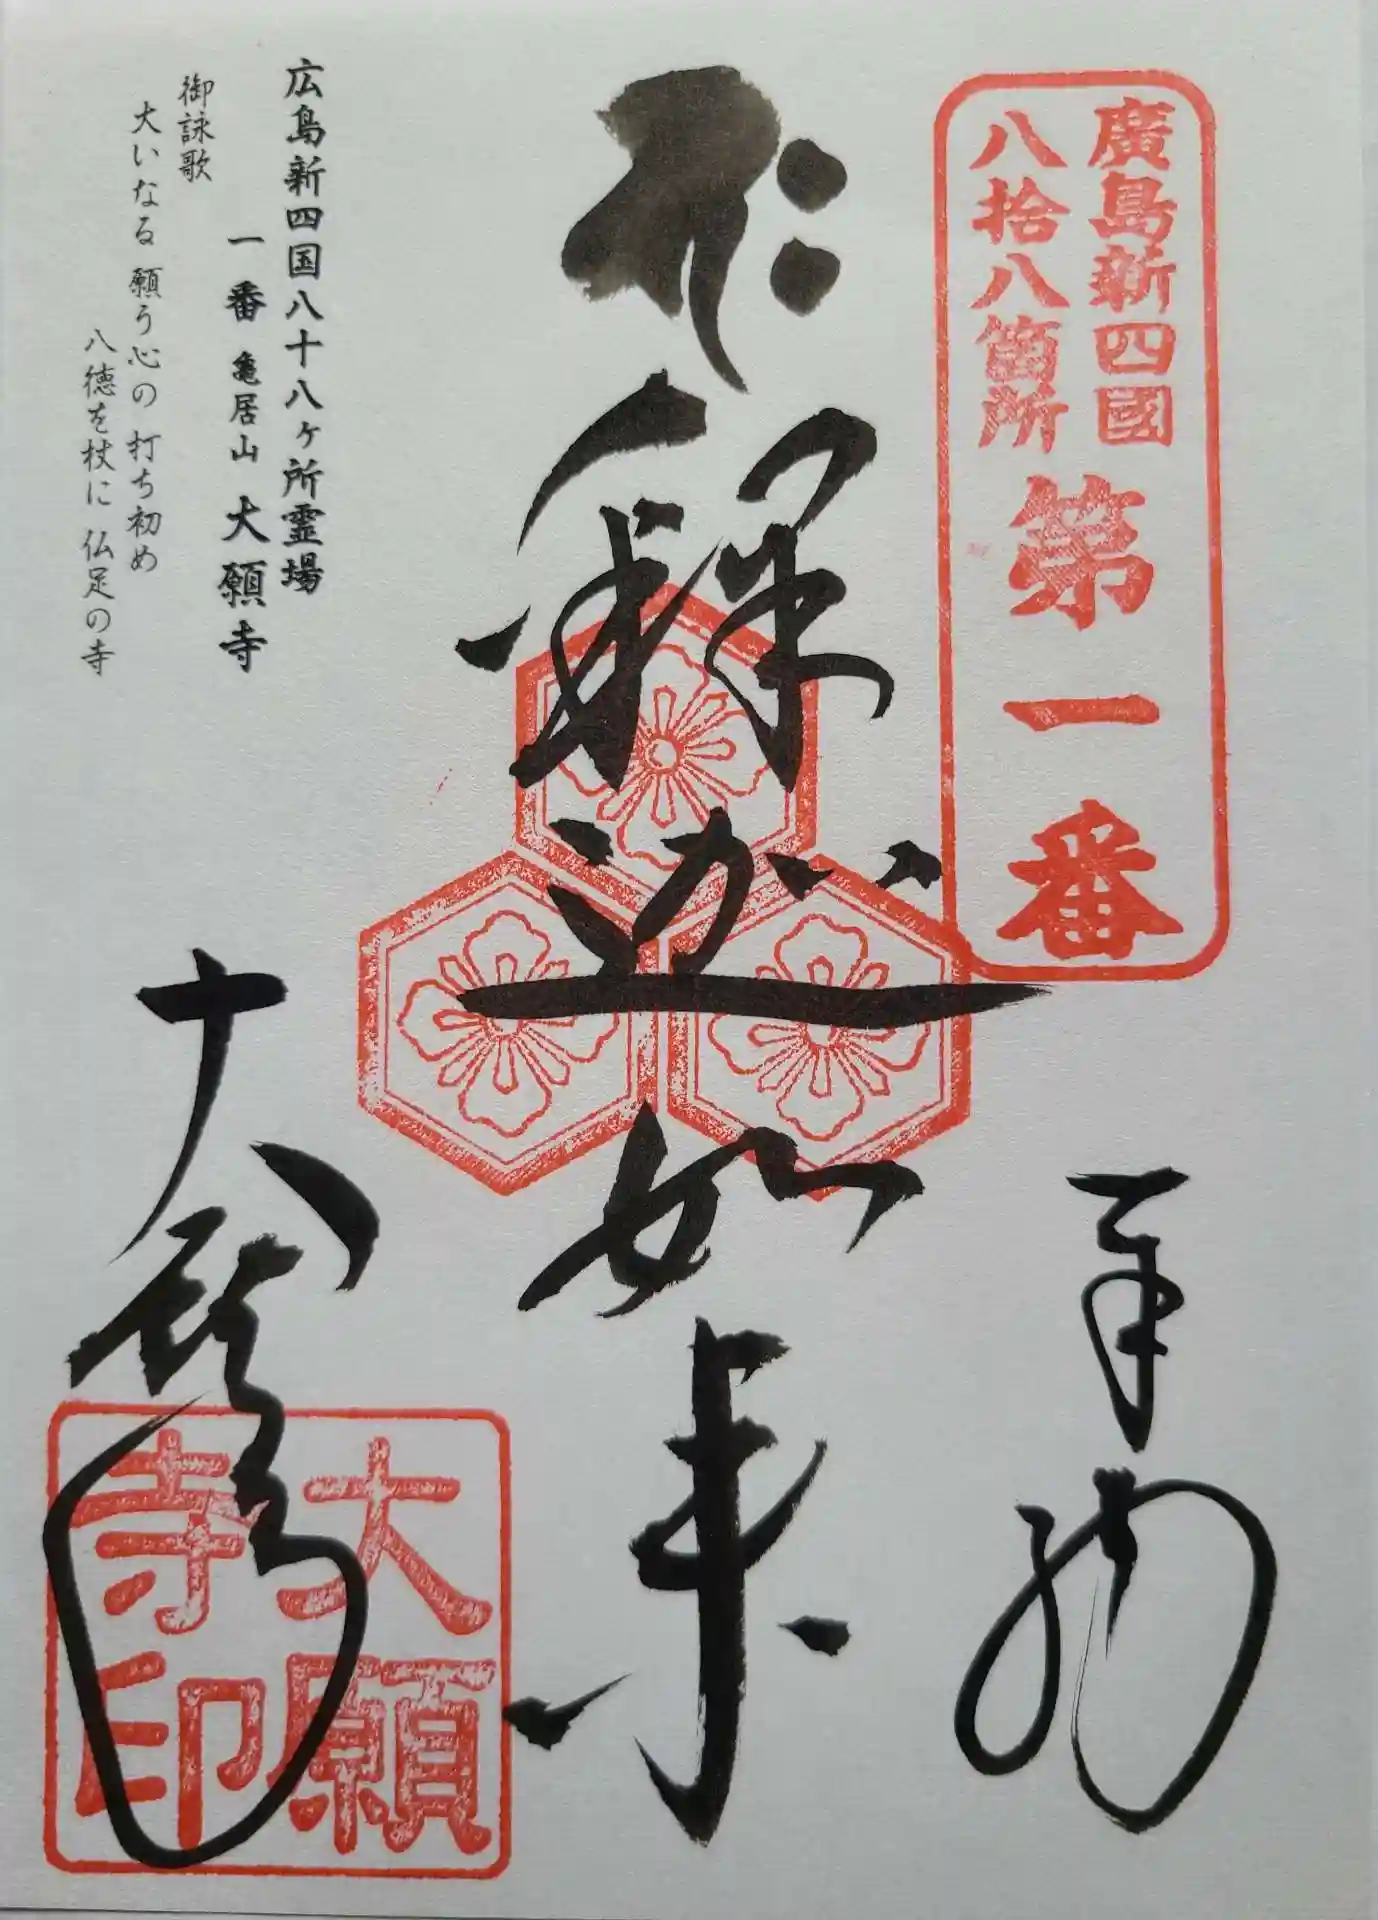 廣島新四國
八拾八箇所
第一番
奉拝
釈迦如来
大願寺
大願
寺印
広島新四国八十八ヶ所霊場
一番 亀居山 大願寺
御詠歌
大いなる 願う心の 打ち初め
八徳を杖に 仏足の寺